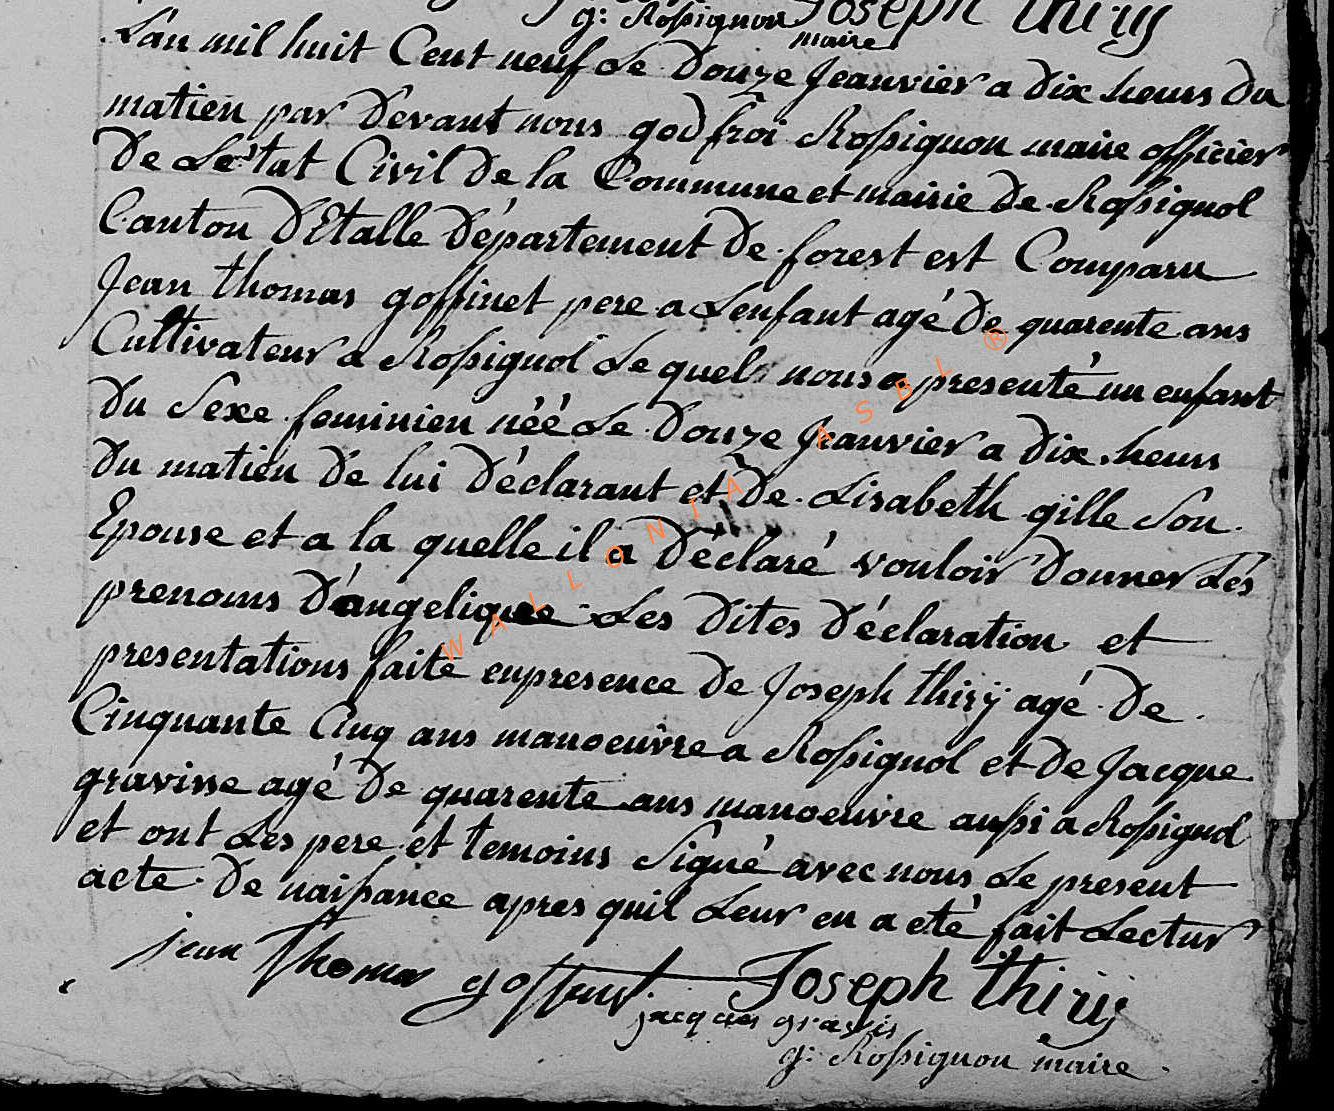 g: Rossignon Joseph thirÿ
maire
L'an mil huit Cent neuf Le Douze Jeanvier a dix heurs du
matien par Devant nous godfroi Rossignon maire officier
De Le'tat Civil De la Commune et mairie De Rossignol
Canton D'Etalle Département De forest est Comparu
Jean thomas goffinet pere a L'enfant agé De quarente ans
Cultivateur a Rossignol Le quel nous a presenté un enfant
Du Sexe feminien néé Le Douze Jeanvier a dix heurs
Du matien De lui Déclarant et De Lisabeth gille Son
Epouse et a la quelle il a Déclaré vouloir Donner Les
prenoms D'angelique Les Dites Déclaration et
presentations faite enpresence De Joseph thirÿ agé De
Cinquante Cinq ans manoeuvre a Rossignol et De Jacque
gravisse agé De quarente ans manoeuvre aussi a Rossignol
et ont Les pere et temoins Signé avec nous Le present
acte De naissance apres quil Leur en a eté fait Lectur
jean Thomas goffinet Joseph thirÿ
jacques gravis
g: Rossignon maire
WALLONIA ASBL ®